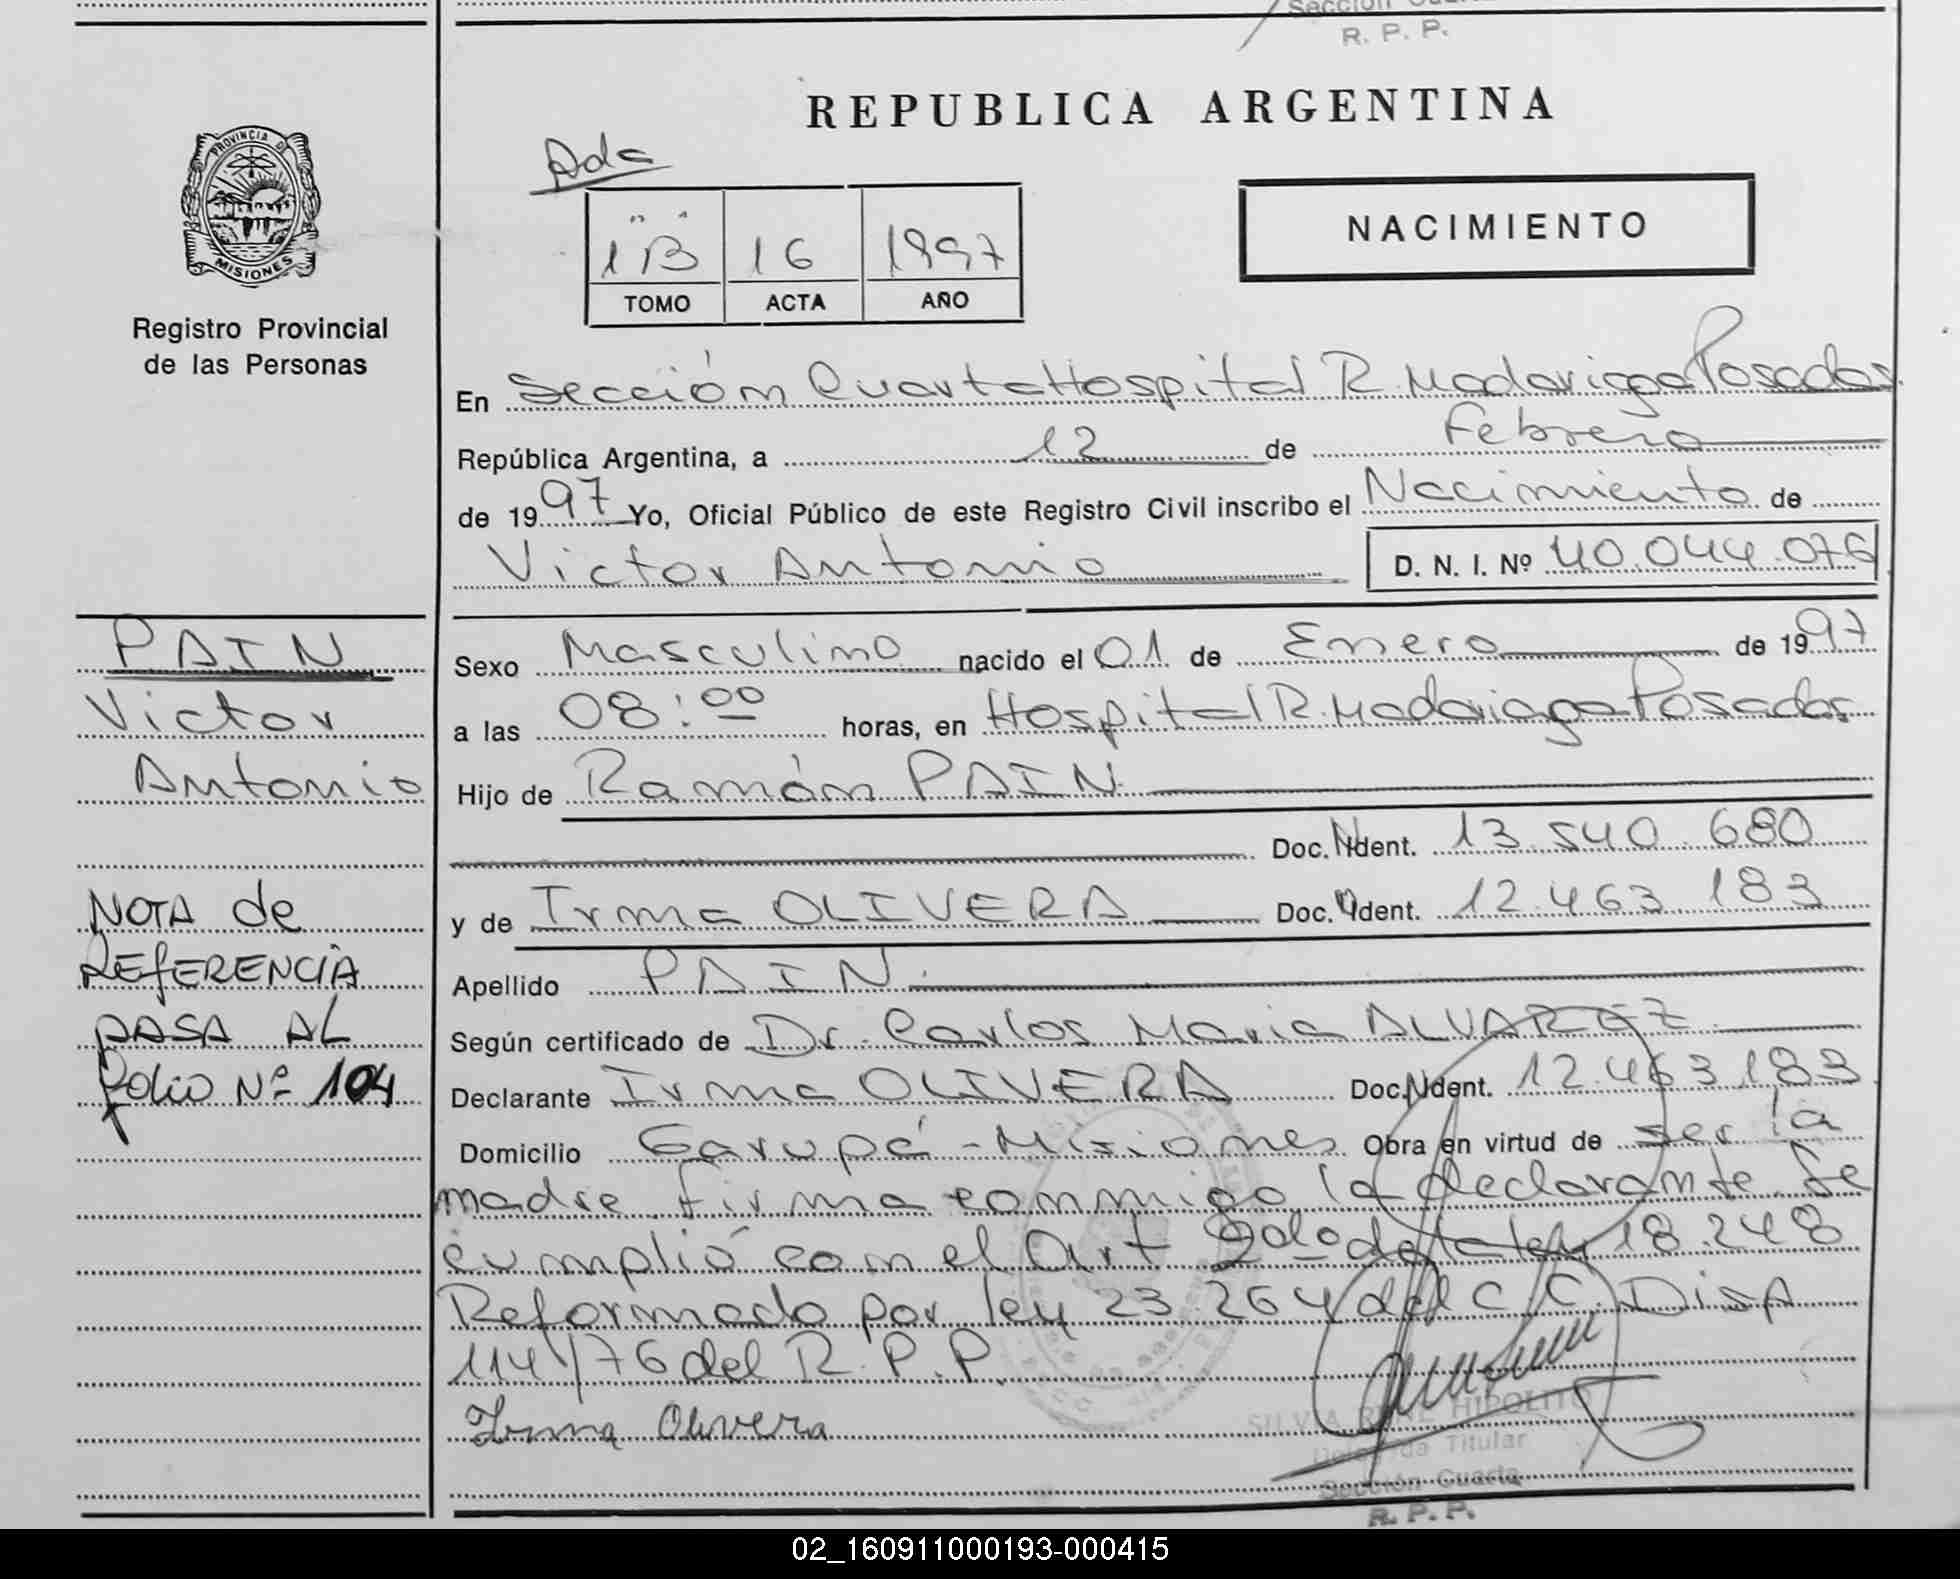 Sección Cuarta
R. P. P.
REPUBLICA ARGENTINA
PROVINCIA DE
MISIONES
Registro Provincial
de las Personas
1"B" 16 1997
TOMO ACTA AÑO
NACIMIENTO
En Sección Cuarta Hospital R. Madariaga Posadas.
República Argentina, a 12 de Febrero
de 1997 Yo, Oficial Público de este Registro Civil inscribo el Nacimiento de
Victor Antonio D. N. I. Nº 40.044.076
PAIN
Victor
Antonio
Sexo Masculino nacido el 01 de Enero de 1997
a las 08:00 horas, en Hospital R. Madariaga Posadas.
Hijo de Ramón PAIN
Doc. Ident. 13.540.680
y de Irma OLIVERA Doc. Ident. 12.463.183
NOTA de
REFERENCIA
PASA AL
folio Nº 104
Apellido PAIN.
Según certificado de Dr. Carlos Maria ALVAREZ
Declarante Irma OLIVERA Doc. Ident. 12.463.183
Domicilio Garupá - Misiones Obra en virtud de ser la
madre. firma conmigo la declarante. Se
cumplió con el Art 2do de la ley 18.248
Reformado por ley 23.264 del C.C. Disp
114/76 del R.P.P.
Irma Olivera
SILVIA RENE HIPOLITO
Delegada Titular
Sección Cuarta
R. P. P.
02_160911000193-000415